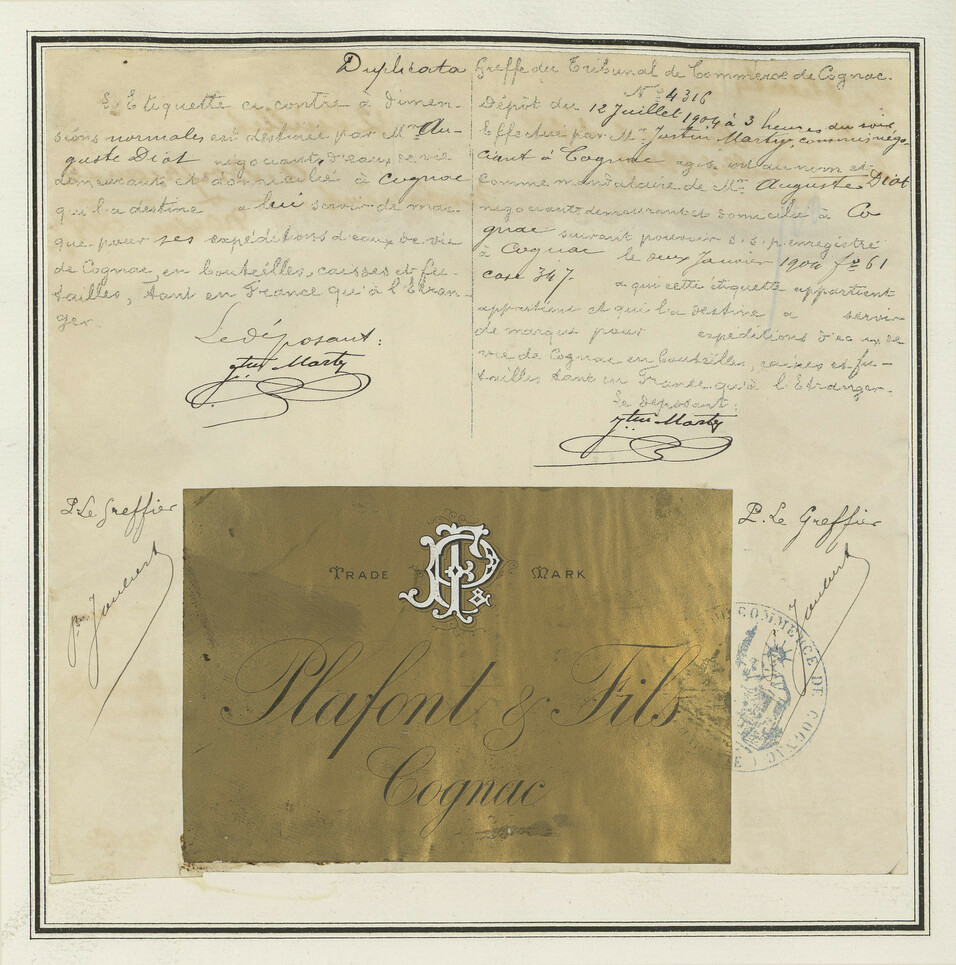 Duplicata
L'Etiquette ci contre à dimen-
sions normales est destinée par Mr Au-
guste Diot négociant d'eaux de vie
demeurant et domicilié à Cognac
qui la destine a lui servir de mar-
que pour ses expéditions d'eaux de vie
de Cognac, en bouteilles, caisses et fu-
tailles, tant en France qu'à l'Etran-
ger.
Le déposant:
Jtin Marty
Greffe du Tribunal de Commerce de Cognac.
No 4316
Dépôt du 12 Juillet 1904 à 3 heures du soir
Effectué par Mr Justin Marty, commis négo-
ciant à Cognac agissant au nom et
comme mandataire de Mr Auguste Diot
négociant demeurant et domicilié à Co
gnac suivant pouvoir s.s.p. enregistré
à Cognac le deux Janvier 1904 fo 61
case 347.
a qui cette étiquette appartient
appartient et qui la destine a servir
de marque pour expéditions d'eaux de
vie de Cognac en bouteilles, caisses et fu-
tailles tant en France qu'à l'Etranger.
Le déposant:
Jtin Marty
P. Le Greffier
Jaubert
P. Le Greffier
Jaubert
TRADE MARK
Plafont & Fils
Cognac
COMMERCE DE COGNAC